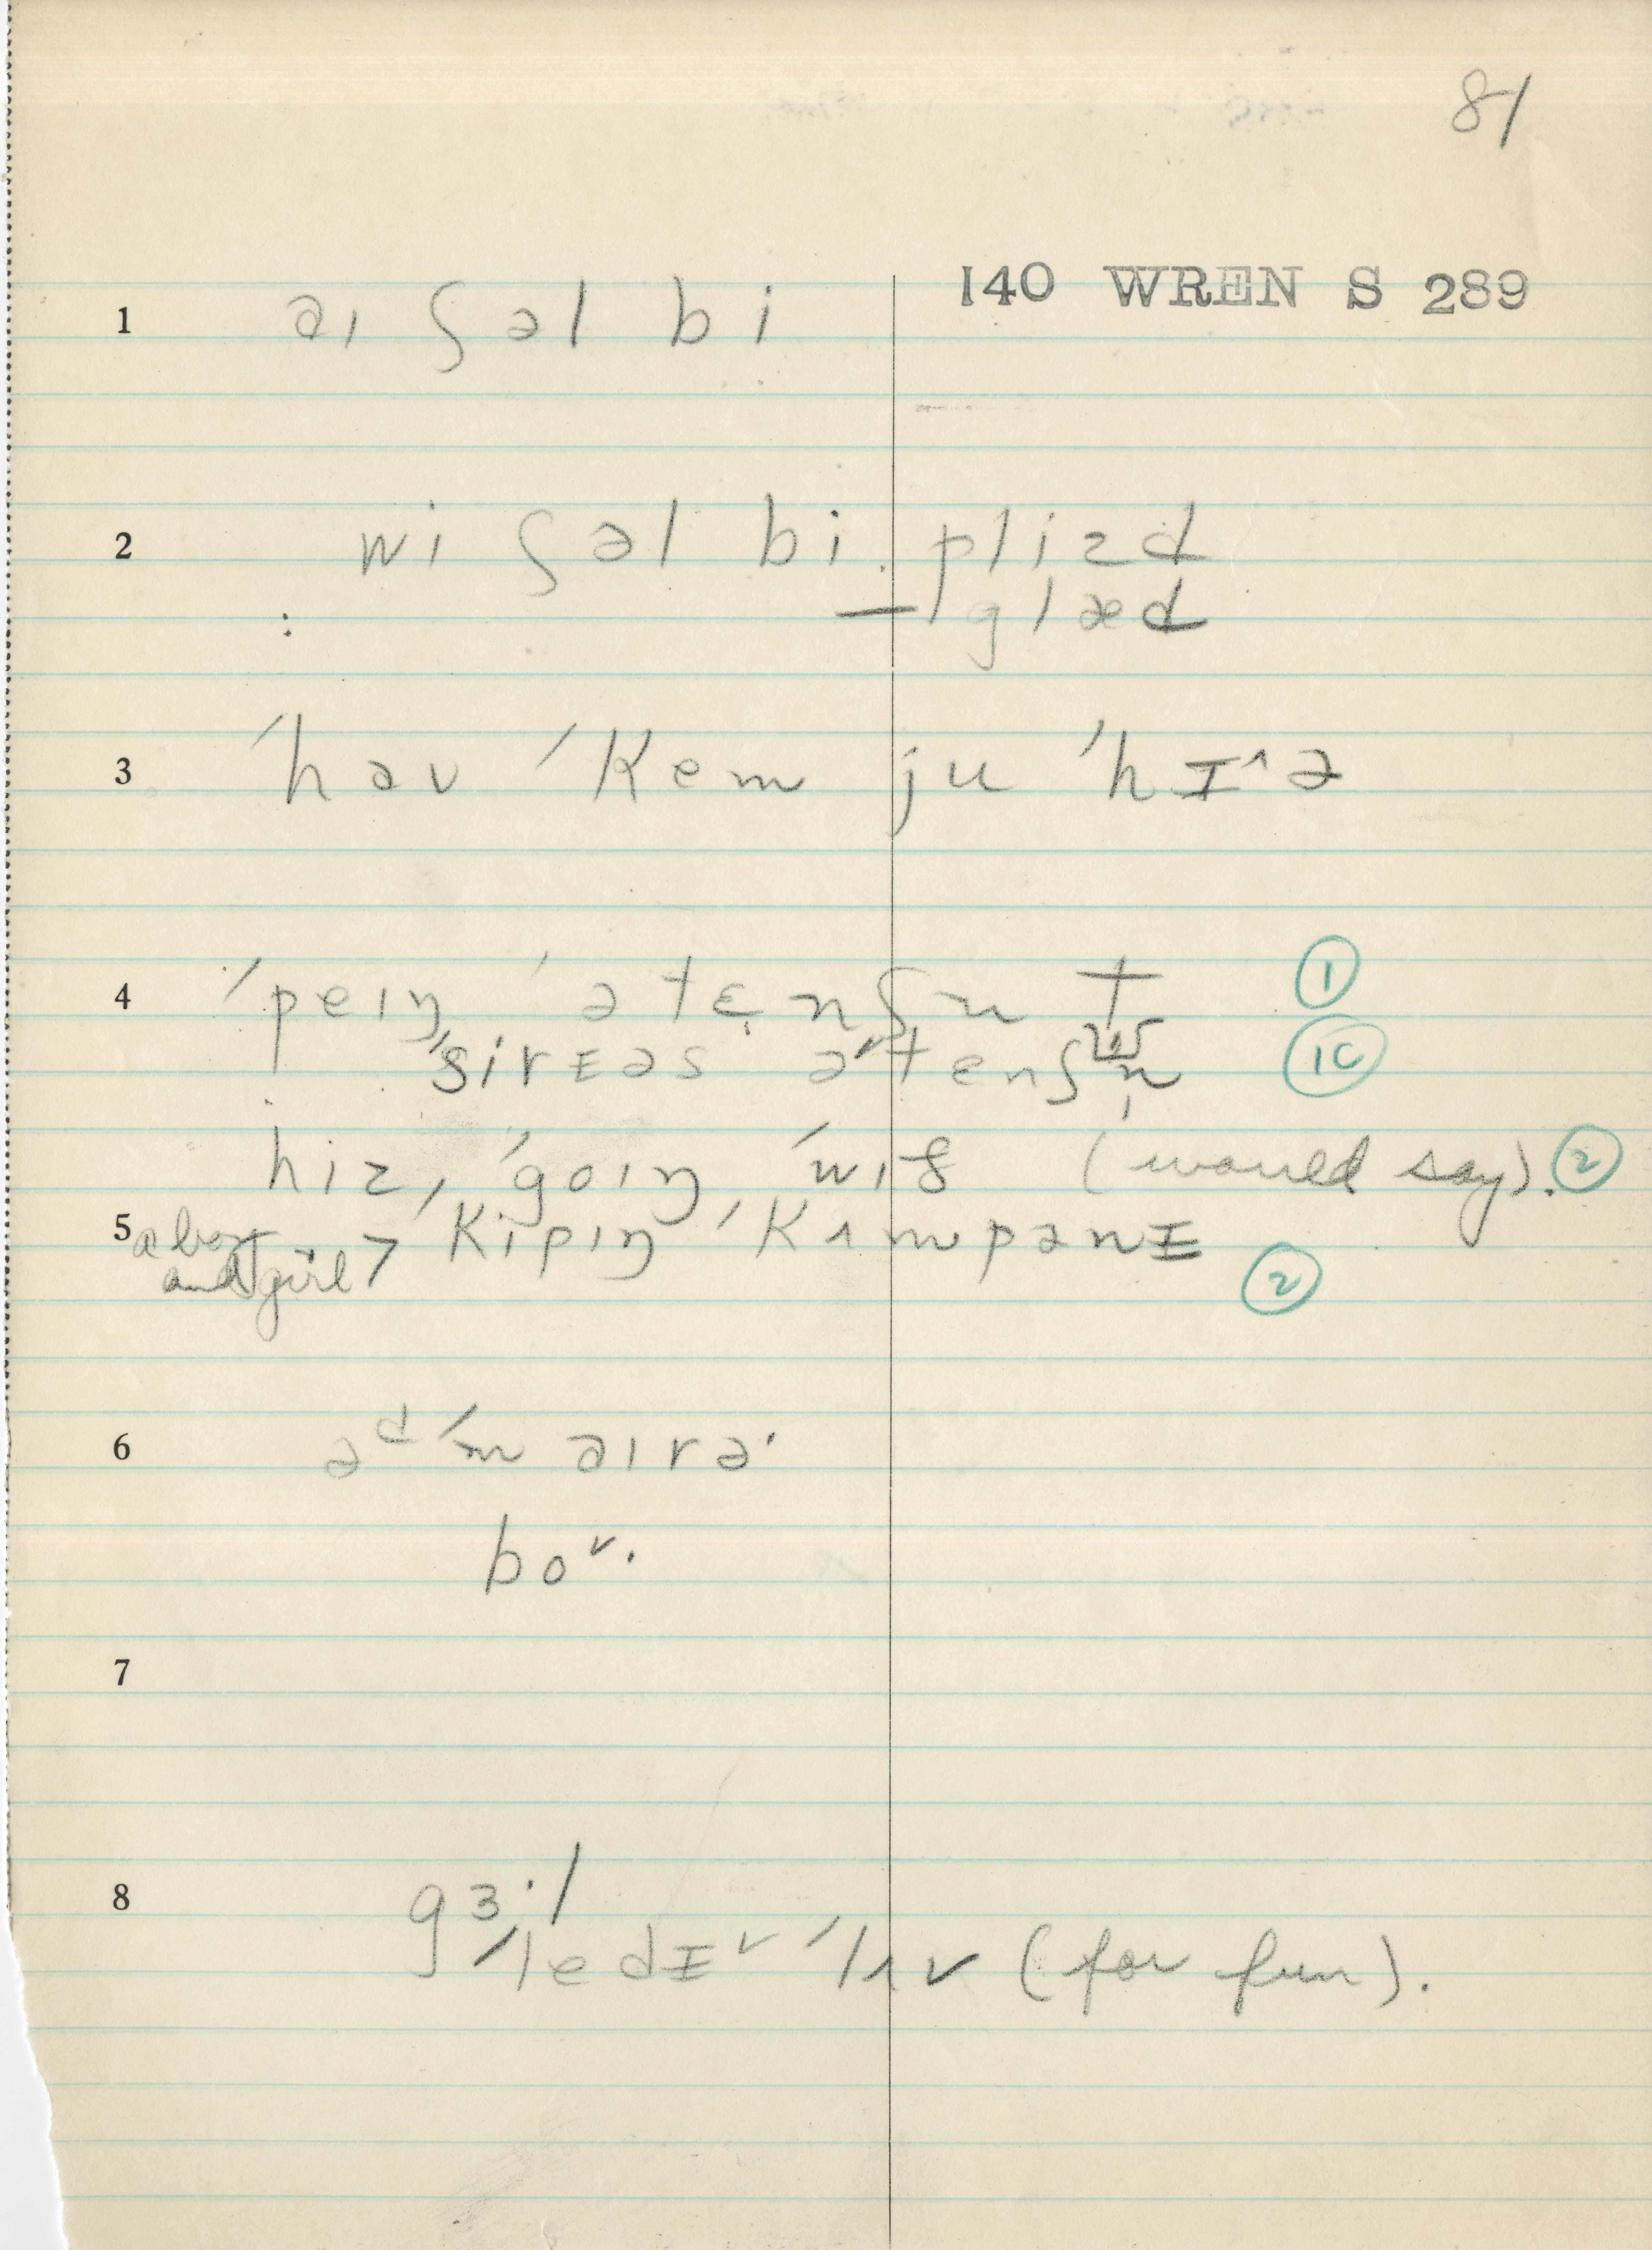 81
140 WREN S 289
1 əɪ ʃəl bi
2 wi ʃəl bi plizd
— glæd
3 ˈhəʊ ˈkem ju ˈhɪ^ə
4 ˈpeɪŋ ˈətɛnʃn t ①
ˈsirɪəs əˈtenʃn ①c
hiz ˈgoɪŋ ˈwɪð (would say). ②
5 a boy and girl > ˈkipɪŋ ˈkʌmpənɪ ②
6 əᵈˈməɪrə·
boᵛ·
7
8 gɜ·l
ˈledɪᵛ ˈlʌv (for fun).